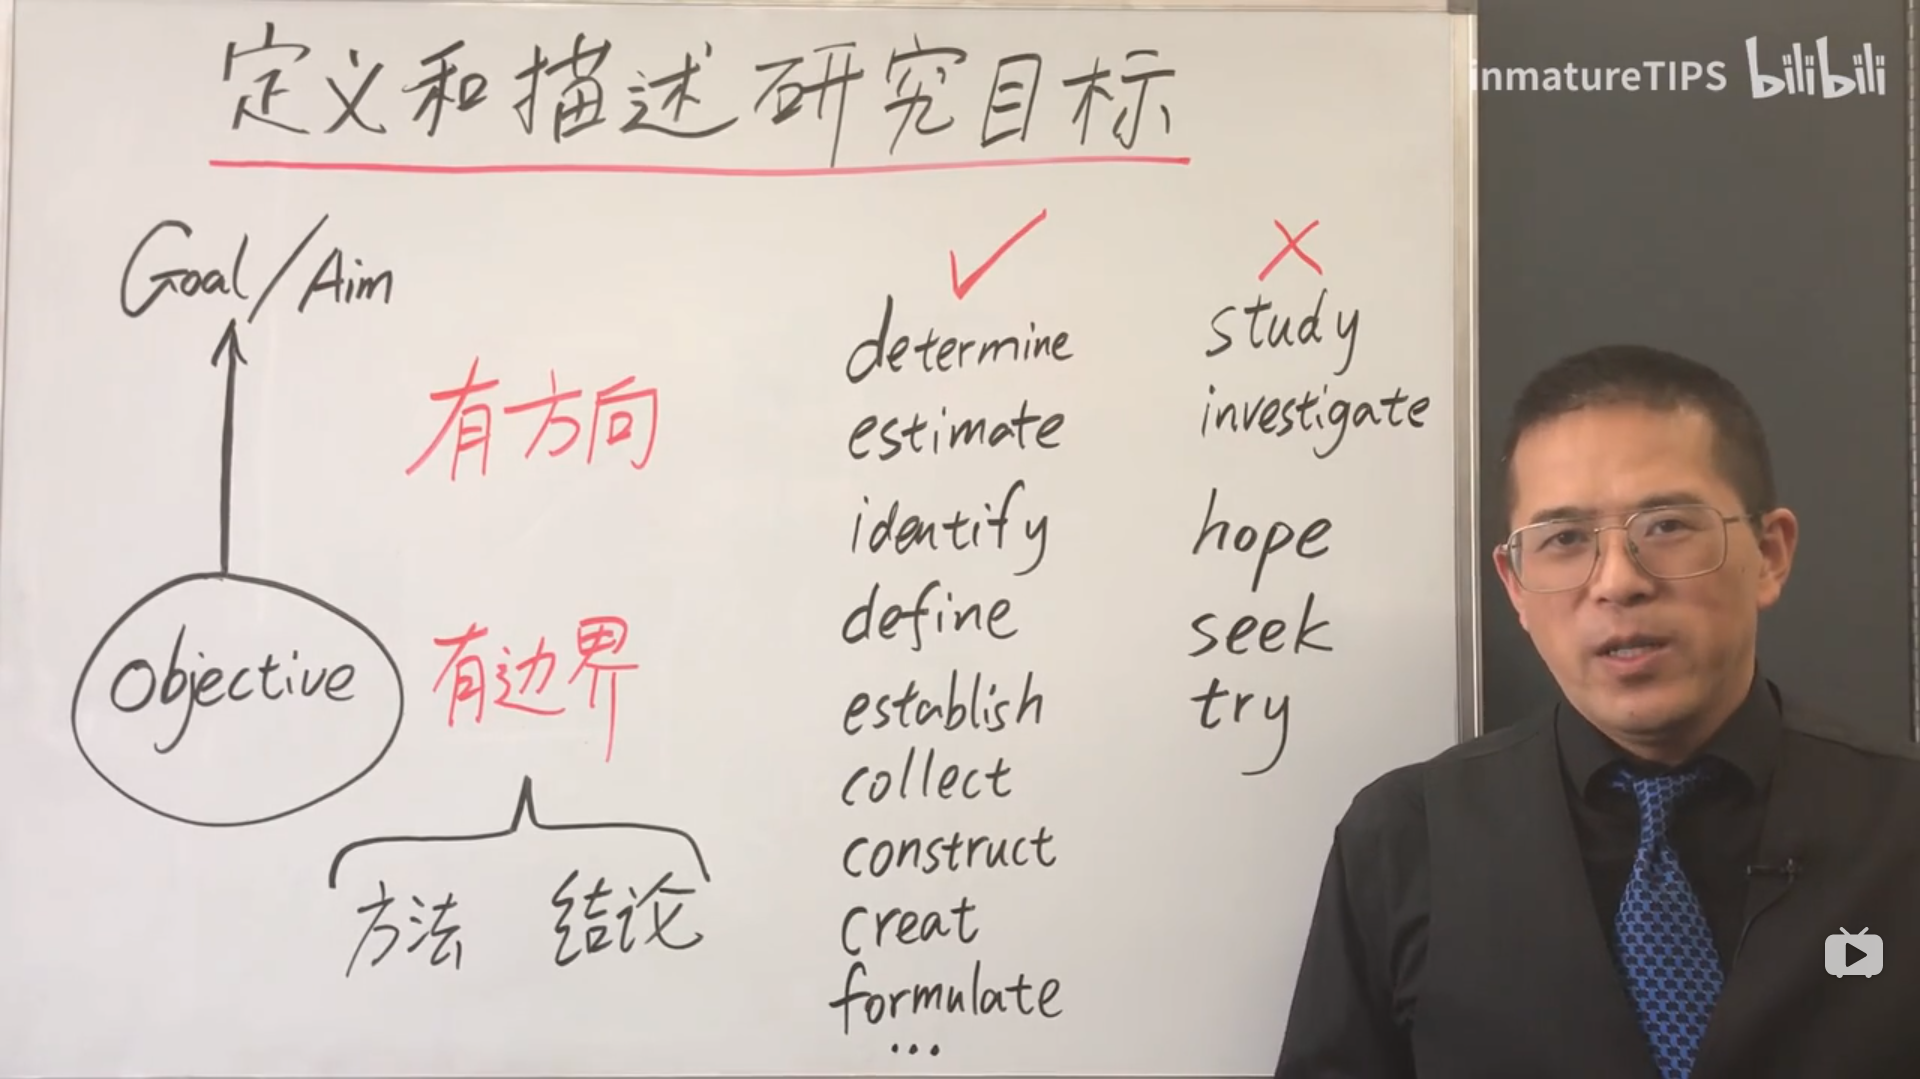 定义和描述研究目标
inmatureTIPS bilibili
Goal/Aim
有方向
objective
有边界
方法 结论
✓
determine
estimate
identify
define
establish
collect
construct
creat
formulate
...
×
study
investigate
hope
seek
try